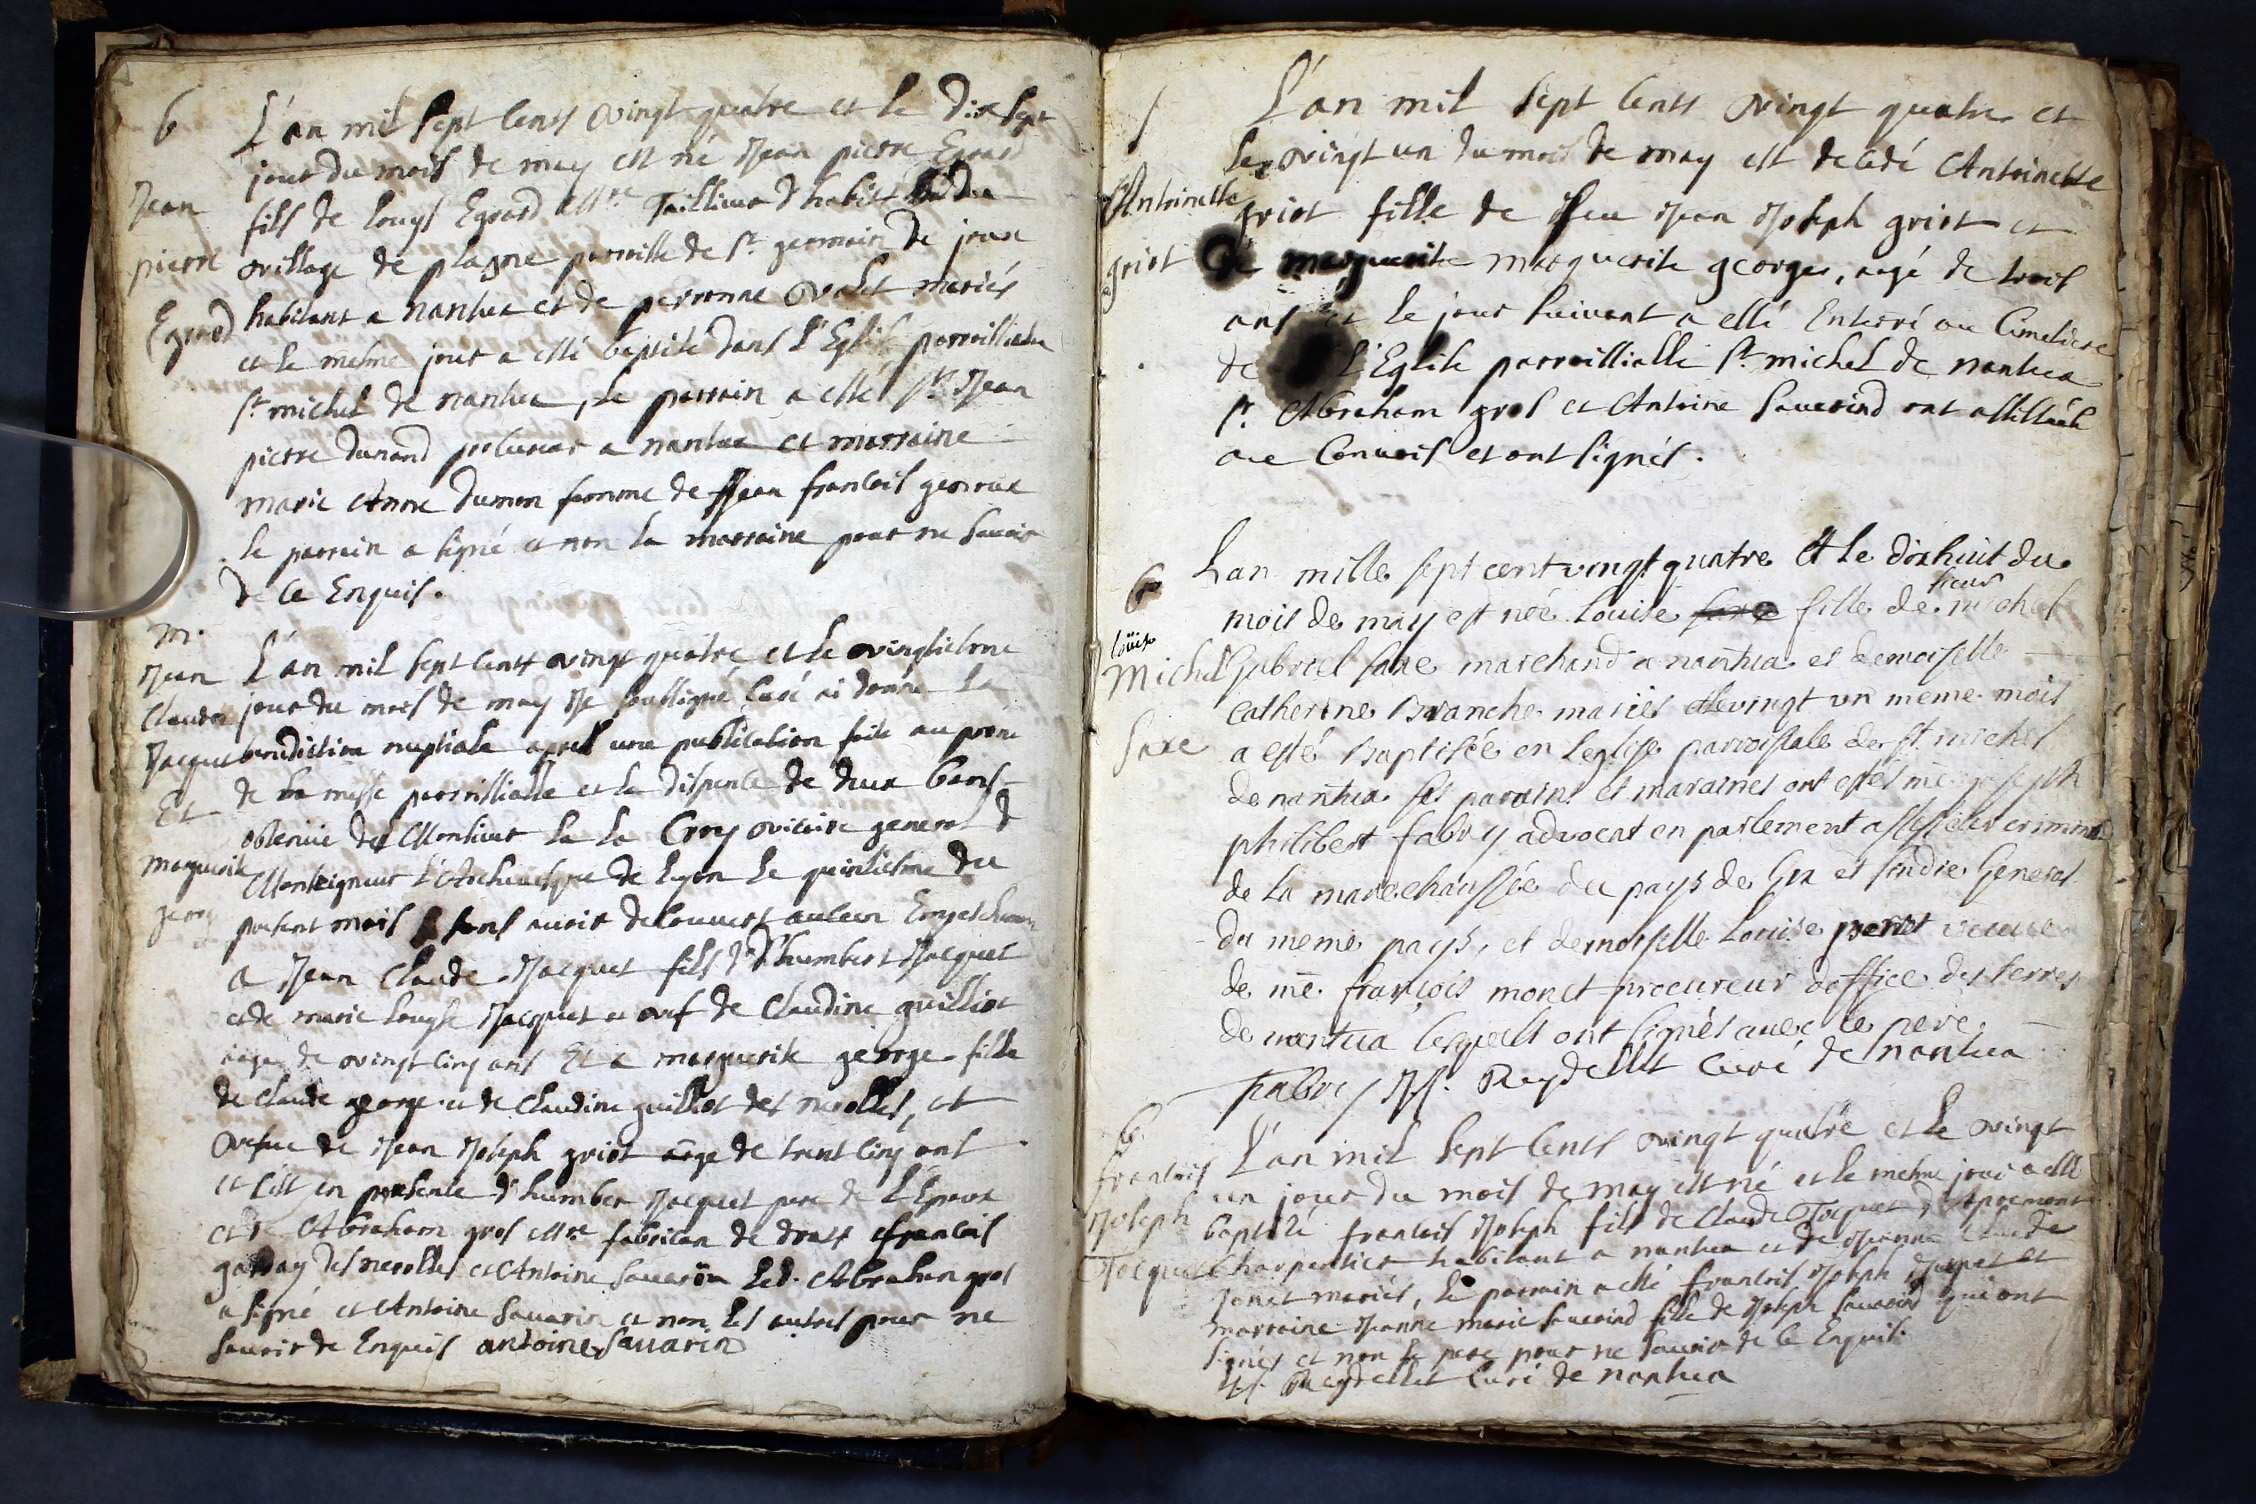 b
Jean
pierre
Egrard
L'an mil sept cents vingt quatre et le dix sept
jour du mois de may est né Jean pierre Egrard
fils de louys Egrard Mtre Taillieur d'habist du
village de plagne parroisse de St germain de joux
habitant a nantua et de perronne mariés
et le mesme jour a esté baptisé dans l'Eglise parroissialle
St michel de nantua, le parrain a esté Sr Jean
pierre Durand procureur a nantua et marraine
marie Anne Dumon femme de Jean francois
le parrain a signé et non la marraine pour ne scavoir
de ce Enquis.
m.
Jean
Claude
Jacquet
Et
marguerite
george
L'an mil sept cents vingt quatre et le vingtiesme
jour du mois de may Je soussigné Curé ai donné la
benediction nuptiale apres une publication faite au prone
de la messe parroissialle et la dispense de deux bans
obtenüe de Monsieur de la Croy vicaire general de
Monseigneur l'Archeuesque de lyon le quinsiesme du
present mois sans auoir decouuert aucun Empeschemen
a Jean Claude Jacquet fils d'humbert Jacquet
et de marie louyse Jacquet et vef de Claudine guilliot
age de vingt cinq ans Et a marguerite george fille
de Claude george et de Claudine guilliot des nerolles, et
vefue de Jean Joseph griot aage de trent cinq ans
et c'est en presence d'humber Jacquet pere de l'Epoux
et de Abraham gros Mtre fabrican de draps francois
des nerolles et Antoine Sauarin led. Abraham gros
a signé et Antoine Sauarin et non les autres pour ne
scauoir de Enquis antoine Sauarin
S
Antoinette
griot
L'an mil sept cents vingt quatre et
le vingt un du mois de may est decedé Antoinette
griot fille de feu Jean Joseph griot et
de marguerite marguerite george, aagé de trois
ans et le jour suivant a esté Enterré au Cimetiere
de l'Eglise parroissialle St michel de nantua
Sr Abraham gros et Antoine Sauarind ont assistés
au Convois et ont signés.
b
loüise
Michel
Saxe
Lan mille sept cent vingt quatre et le dixhuit du
mois de may est née Louise fille de sieur michel
Gabriel saxe marchand a nantua et demoiselle
Catherine Branche mariés et le vingt un meme mois
a esté Baptisée en Leglise parroissiale de St michel
de nantua ses parrains et maraines ont estés me joseph
philibert fabry advocat en parlement assesseur criminel
de la marechaussée du pays de Gex et sindic General
du meme pays, et demoiselle Louise perret veuve
de me francois monet procureur doffice des terres
de nantua lesquels ont signés avec le pere.
fabry Reydellet Curé de nantua
b.
francois
Joseph
Jacquet
L'an mil sept cents vingt quatre et le vingt
un jour du mois de may est né et le mesme jour a esté
baptisé francois Joseph fils de Claude Jacquet d'Apremont
charpentier habitant a nantua et de Jeanne Claude
Jonet mariés, le parrain a esté francois Joseph Jacquet et
marraine Jeanne marie Sauarind fille de Joseph Sauarind qui ont
signés et non le pere pour ne scauoir de ce Enquis.
Reydellet Curé de nantua